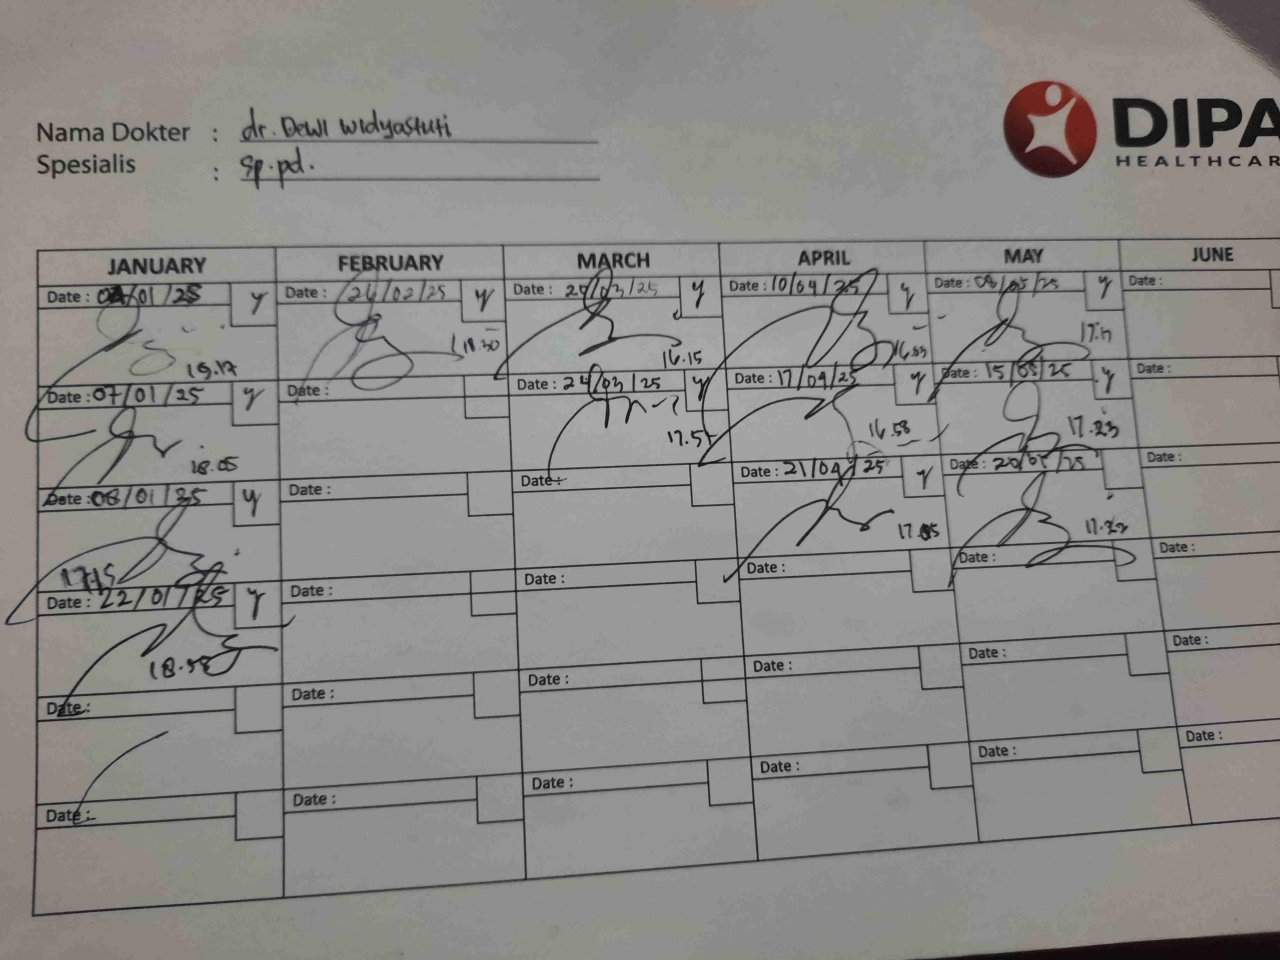 Nama Dokter : dr. Dewi Widyastuti
Spesialis : Sp.pd.
DIPA
HEALTHCAR
JANUARY FEBRUARY MARCH APRIL MAY JUNE
Date : /01/25 y Date : 26/02/25 y Date : 20/03/25 y Date : 10/04/25 y Date : 08/05/25 y Date :
18.30 16.15
Date : 07/01/25 y Date : Date : 24/03/25 y Date : 17/04/25 y Date : 15/05/25 y Date :
18.05 16.58 17.23
Date : 08/01/25 y Date : Date : Date : 21/04/25 y Date : 20/05/25 Date :
17.15 17.22
Date : 22/01/25 y Date : Date : Date : Date : Date :
18.58
Date : Date : Date : Date : Date : Date :
Date : Date : Date : Date : Date : Date :